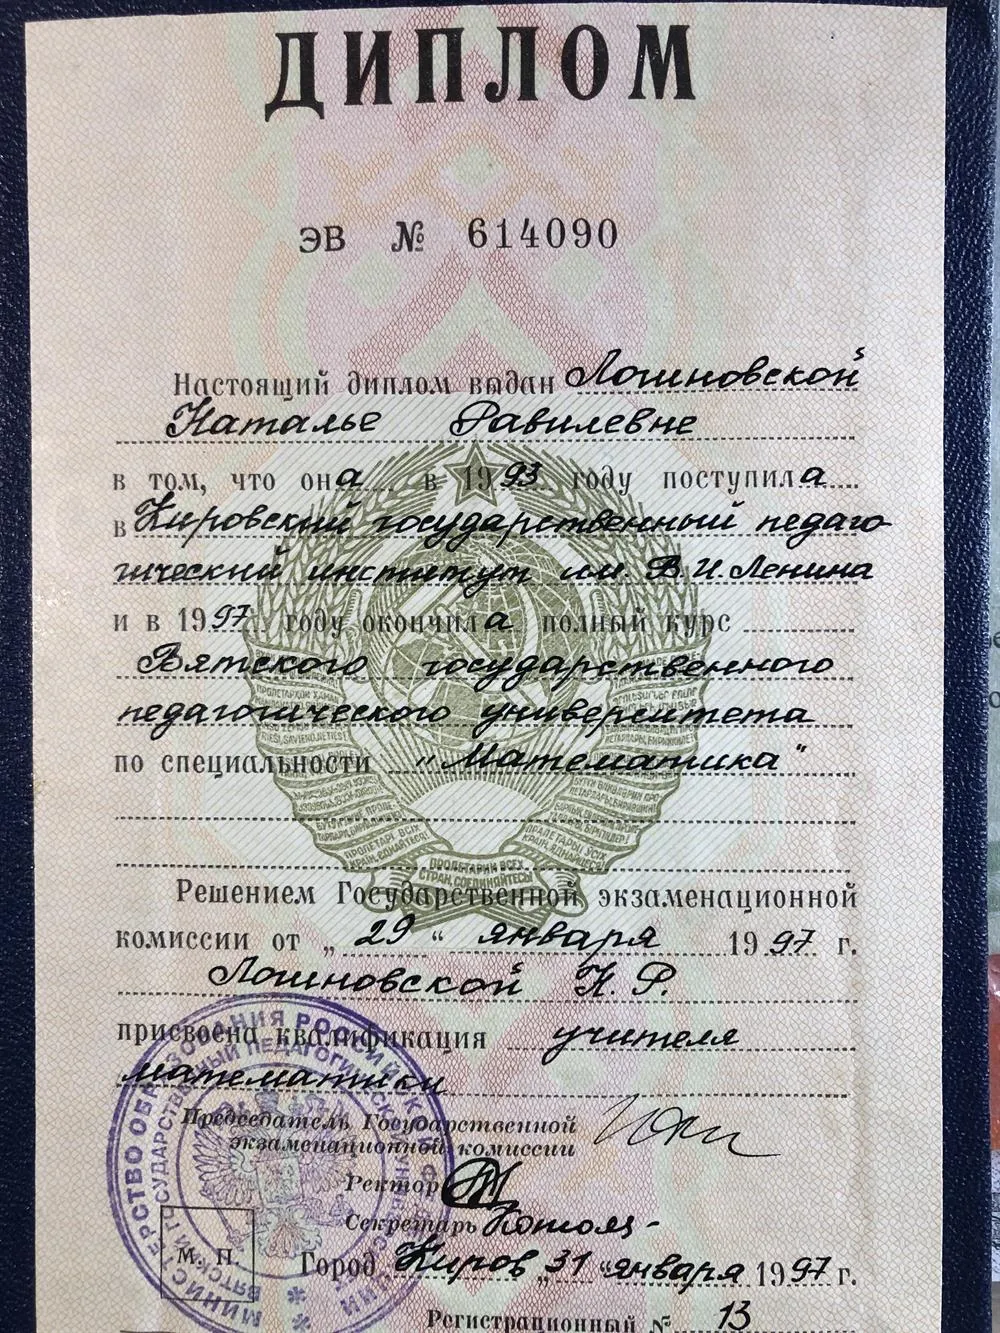 ДИПЛОМ
ЭВ № 614090
Настоящий диплом выдан Логиновской
Наталье Равилевне
в том, что она в 1993 году поступила
в Кировский государственный педаго-
гический институт им. В.И. Ленина
и в 1997 году окончила полный курс
Вятского государственного
педагогического университета
по специальности "Математика"
ПРОЛЕТАРИИ ВСЕХ
СТРАН, СОЕДИНЯЙТЕСЬ!
Решением Государственной экзаменационной
комиссии от „29“ января 1997 г.
Логиновской Н. Р.
присвоена квалификация учителя
математики
Председатель Государственной
экзаменационной комиссии
Ректор
Секретарь
М. П.
Город Киров „31“ января 1997 г.
Регистрационный № 13